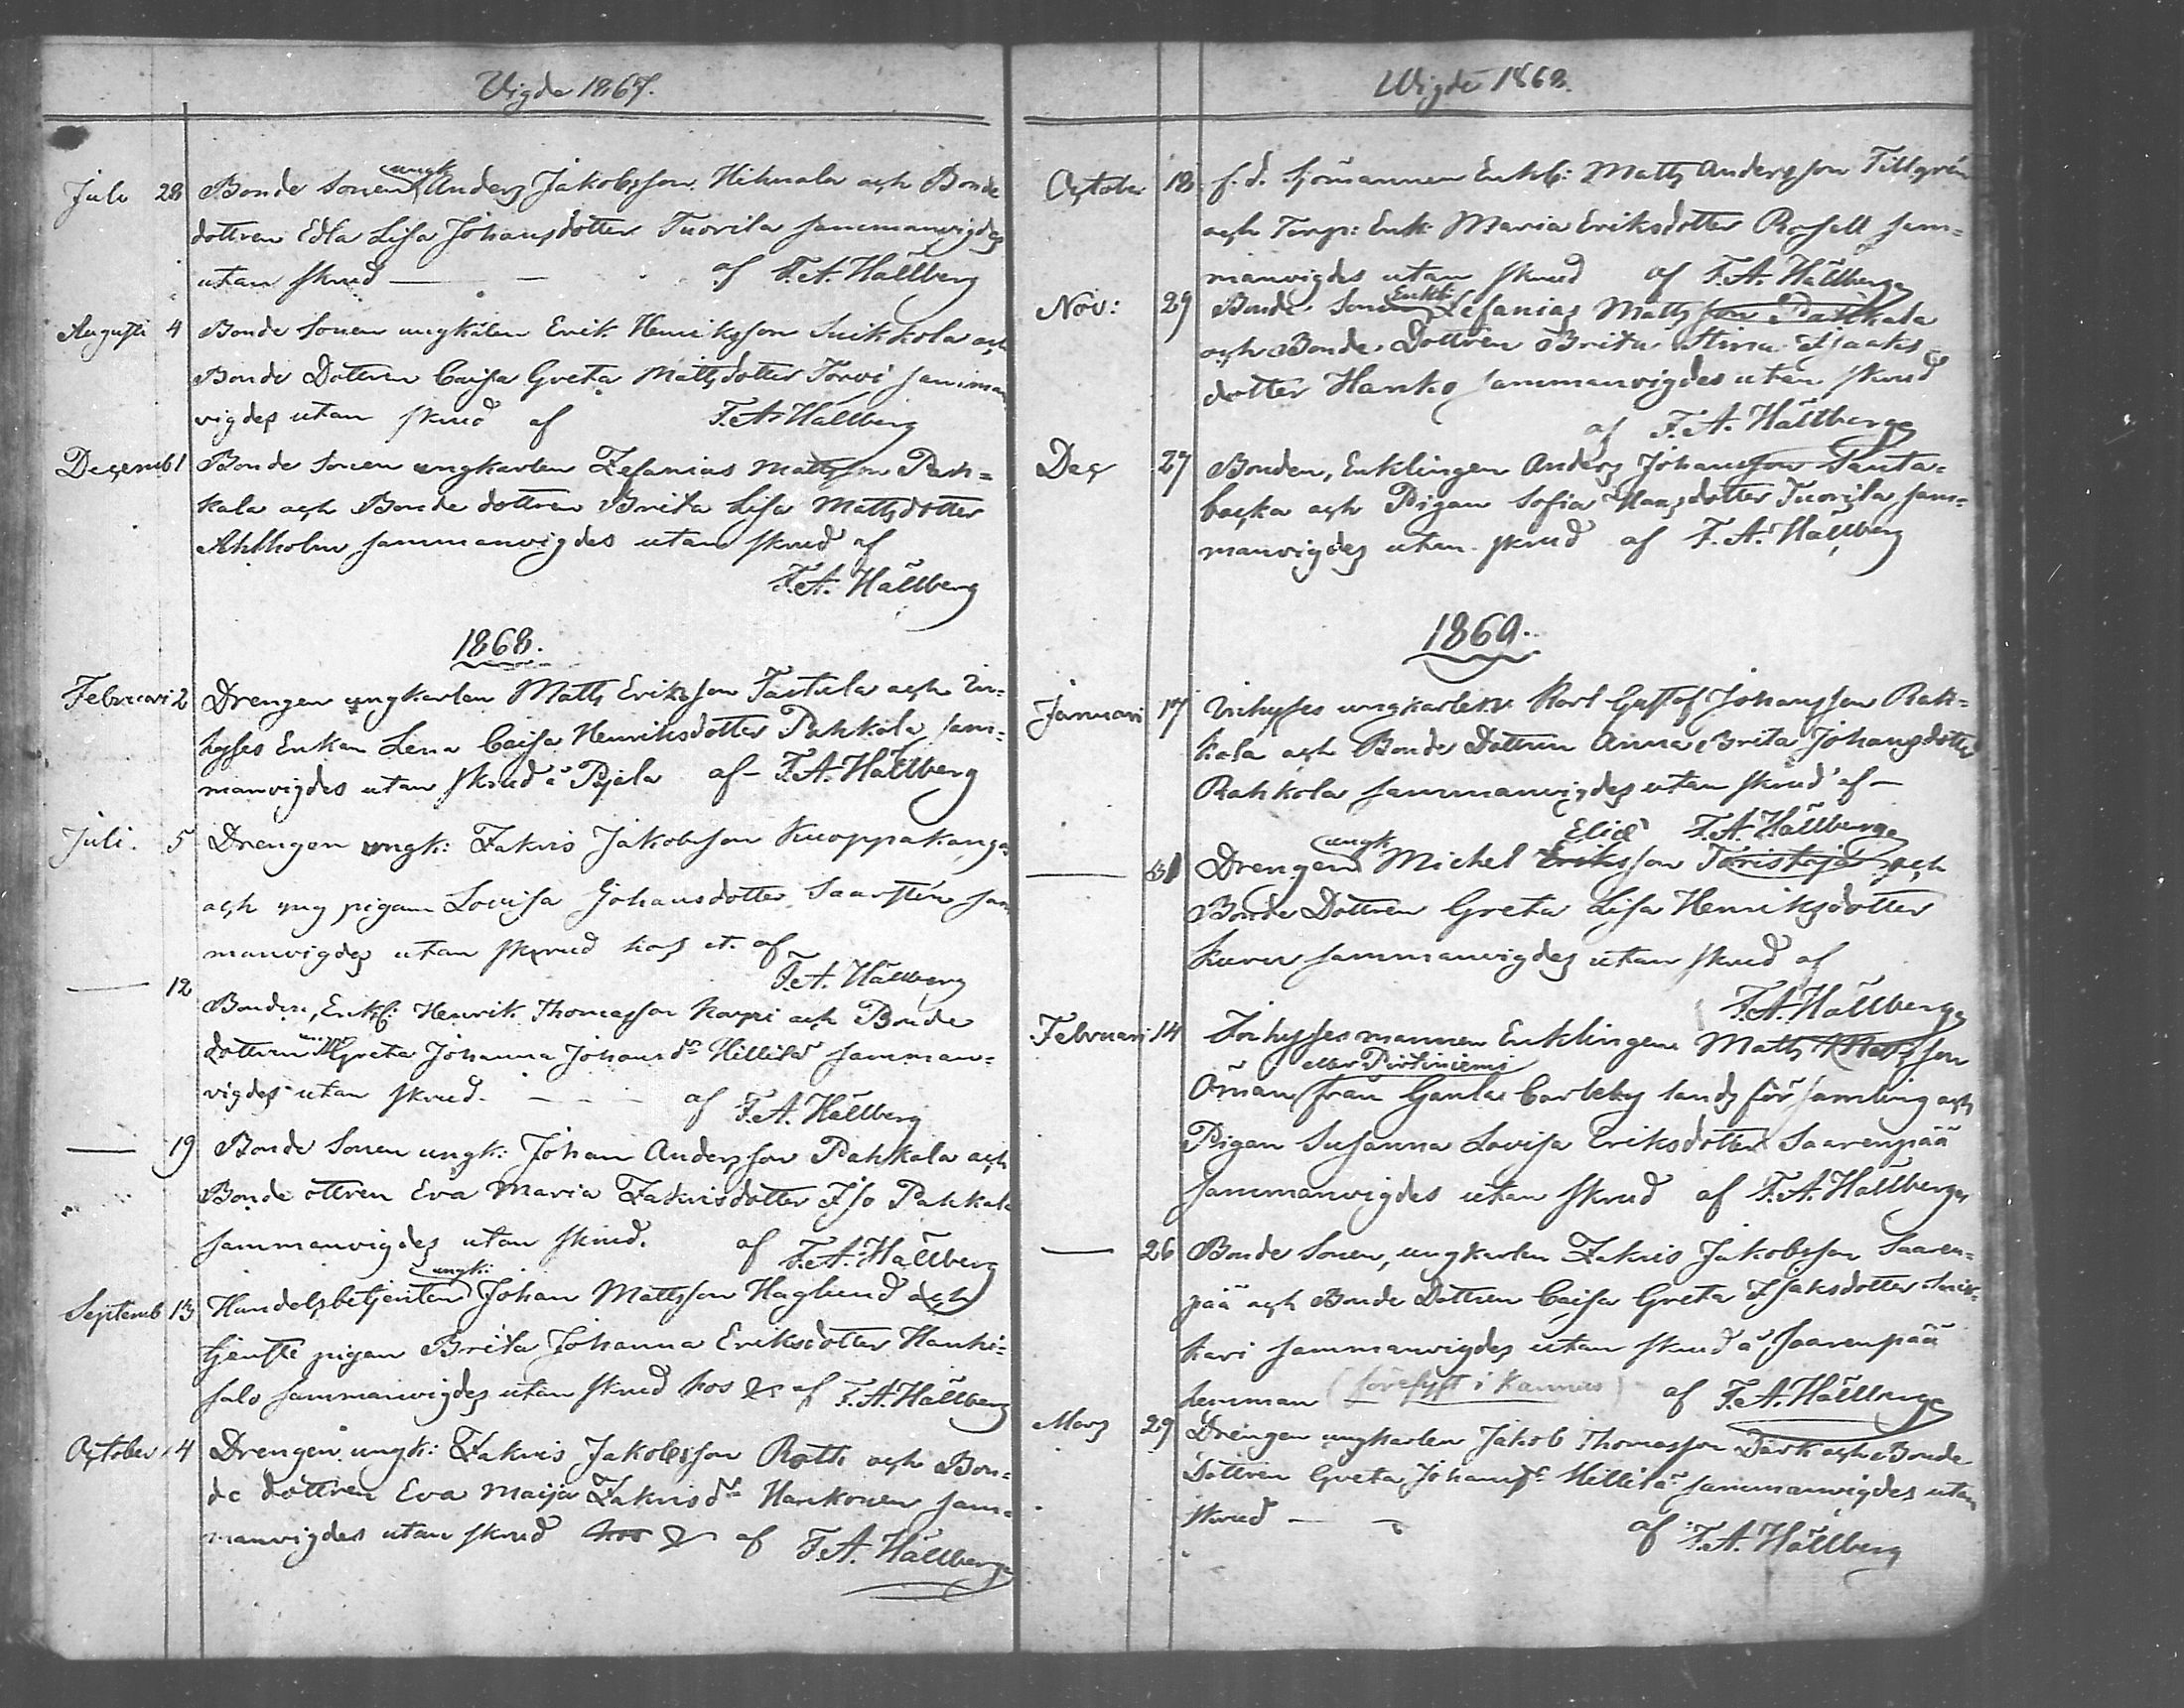 Vigde 1867.
Juli 28 Bonde Sonen ungk Anders Jakobsson Hihnala och Bonde
dottren Edla Lisa Johansdotter Tuorila sammanvigdes
utan skrud — — af F. A. Hällberg
Augusti 4 Bonde Sonen ungkalen Erik Henriksson Suikkola och
Bonde Dottren Caisa Greta Mattsdotter Torvi samman
vigdes utan skrud af F. A. Hällberg
Decemb 1 Bonde Sonen ungkarlen Zefanias Mattsson Pah=
kala och Bonde dottren Brita Lisa Mattsdotter
Ahlholm sammanvigdes utan skrud af
F. A. Hällberg
1868.
Februari 2 Drengen ungkarlen Matts Eriksson Tastula och In=
hyses Enkan Lena Caisa Henriksdotter Pahkala sam=
manvigdes utan skrud å Pyjala af – F. A. Hällberg
Juli. 5 Drengen ungk: Zakris Jakobsson Knoppakangas
och ung pigan Lovisa Johansdotter Saarsten sam
manvigdes utan skrud hos et. af
F. A. Hällberg
— 12
Bonden, Enkl: Henrik Thomasson Korpi och Bonde
dottren Greta Johanna Johans dr Hillilä samman=
vigdes utan skrud. — — — af F. A. Hällberg
— 19 Bonde Sonen ungk: Johan Andersson Pahkala och
Bonde ottren Eva Maria Zakrisdotter Iso Pahkala
sammanvigdes utan skrud. af F. A. Hällberg
Septemb 13 Handelsbetjenten ungk: Johan Mattsson Haglund och
tjenste pigan Brita Johanna Eriksdotter Hanhi=
salo sammanvigdes utan skrud hos af F. A. Hällberg
October 4 Drengen ungk: Zakris Jakobsson Rotti och Bon=
de dottren Eva Maija Zakris dr Hankonen sam=
manvigdes utan skrud hos af F. A. Hällberg
Wigde 1868.
October 18 f. d. Sjömannen Enkl: Matts Andersson Tillgrén
och Torp: Enk Maria Eriksdotter Rosell sam=
manvigdes utan skrud af F. A. Hällberg
Nov: 29 Bonde Sonen Enkl: Zefanias Mattsson Pahkala
och Bonde Dottren Brita Stina Isaaks
dotter Hanko sammanvigdes utan skrud
af F. A. Hällberg
Dec 27 Bonden, Enklingen Anders Johansson Santa=
backa och Pigan Sofia Maasdotter Tuorila sam=
manvigdes utan skrud af F. A. Hällberg
1869.
Januari 17 Inhyses ungkarlen Karl Gustof Johansson Rah=
kola och Bonde Dottren Anna Brita Johansdotter
Rahkola sammanvigdes utan skrud af –
F. A. Hällberg
— 31 Drengen ungk Michel Eriksson Elia Toristoja och
Bonde Dottren Greta Lisa Henriksdotter
Kuru sammanvigdes utan skrud af
F. A. Hällberg
Februari 14 Inhyses mannen Enklingen Matts Mattsson
Öman eller Pirtiniemi från Gamla Carleby lands församling och
Pigan Susanna Lovisa Eriksdotter Saarenpää
sammanvigdes utan skrud af F. A. Hällberg
— 26 Bonde Sonen, ungkarlen Zakris Jakobsson Saaren=
pää och Bonde Dottren Caisa Greta Isaksdotter
kari sammanvigdes utan skrud å Saarenpää
hemman (förelyst i Kannus) af F. A. Hällberg
Mars 29 Drengen ungkarlen Jakob Thomasson Türk och Bonde
Dottren Greta Johans dr Hillilä sammanvigdes utan
skrud — af F. A. Hällberg